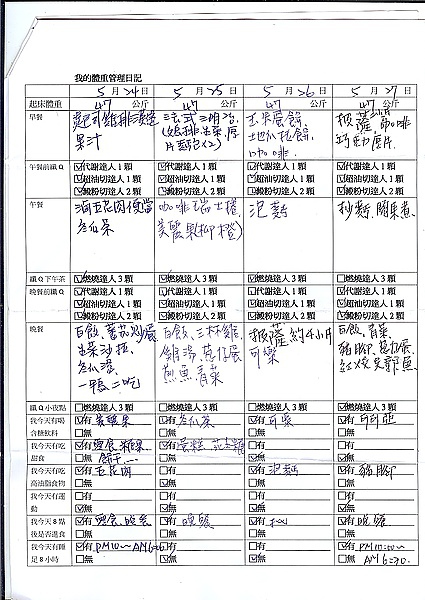 我的體重管理日記
5 月 24 日 5 月 25 日 5 月 26 日 5 月 27 日
起床體重 47 公斤 47 公斤 47 公斤 47 公斤
早餐 起司雞排漢堡 法式三明治 玉米蛋餅 披薩 咖啡
果汁 地瓜 巧克力
咖啡
午餐前纖Q ☑代謝達人1顆 ☑代謝達人1顆 ☑代謝達人1顆 ☑代謝達人1顆
☑超油切達人1顆 ☑超油切達人1顆 ☑超油切達人1顆 ☑超油切達人1顆
☑澱粉切達人2顆 ☑澱粉切達人2顆 ☑澱粉切達人2顆 ☑澱粉切達人2顆
午餐 五花肉便當 咖啡 瑞士捲 泡麵 炒麵 關東煮
冬瓜茶 (柳橙)
纖Q下午茶 ☑燃燒達人3顆 ☑燃燒達人3顆 ☑燃燒達人3顆 □燃燒達人3顆
晚餐前纖Q ☑代謝達人1顆 ☑代謝達人1顆 ☑代謝達人1顆 ☑代謝達人1顆
☑超油切達人1顆 ☑超油切達人1顆 ☑超油切達人1顆 ☑超油切達人1顆
☑澱粉切達人2顆 ☑澱粉切達人2顆 ☑澱粉切達人2顆 ☑澱粉切達人2顆
晚餐 白飯 蕃茄炒蛋 白飯 三杯雞 披薩 約4小片 白飯 青菜
生菜沙拉 雞湯 蔥蛋 可樂 豬腳 蔥蛋
冬瓜湯 煎魚 青菜 紅燒 魚
一鴨二吃
纖Q小夜點 □燃燒達人3顆 □燃燒達人3顆 □燃燒達人3顆 □燃燒達人3顆
我今天有喝 ☑有 蘋果 ☑有 冬瓜茶 ☑有 可樂 ☑有 可可亞
含糖飲料 □無 □無 □無 □無
我今天有吃 ☑有 糖果 ☑有 蛋糕 □有 ☑有
甜食 □無 餅干 □無 ☑無 □無
我今天有吃 ☑有 五花肉 □有 ☑有 泡麵 ☑有 豬腳
高油脂食物 □無 ☑無 □無 □無
我今天有運 □有 □有 □有 □有
動 ☑無 ☑無 ☑無 ☑無
我今天8點 ☑有 ☑有 晚餐 ☑有 ☑有 晚餐
後是否進食 □無 □無 □無 □無
我今天有睡 ☑有 PM10~AM6:00 □有 □有 ☑有 PM10:00~
足8小時 □無 ☑無 ☑無 □無 AM6:30